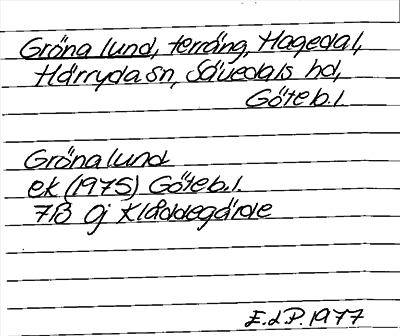 Gröna lund, terräng, Hagedal,
Härryda sn, Sävedals hd,
Göteb. l.
Gröna lund
ek (1975) Göteb. l.
7B 0j Kläddegärde
E. d P. 1977